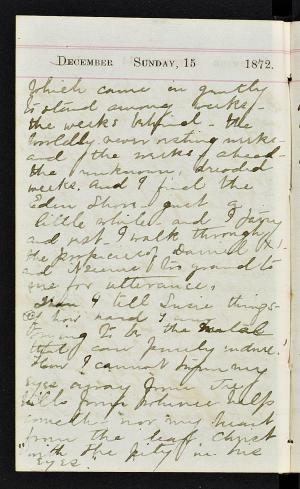 December Sunday, 15 1872.
Which come in gently
to stand among weeks -
the weeks behind - the
worldly never resting weeks -
and the weeks ahead -
the unknown, dreaded
weeks. And I find the
Eden Shore just a
little while - and I
and rest - I walk through
the prophecies Daniel XI
and to
me for utterance,
I tell Susie things -
how hard I am
trying to be the metal
that can purely endure!
How I cannot turn my
eyes away from
hills from whence help
cometh - nor my heart
from the Christ
"with the pity in his
eyes."